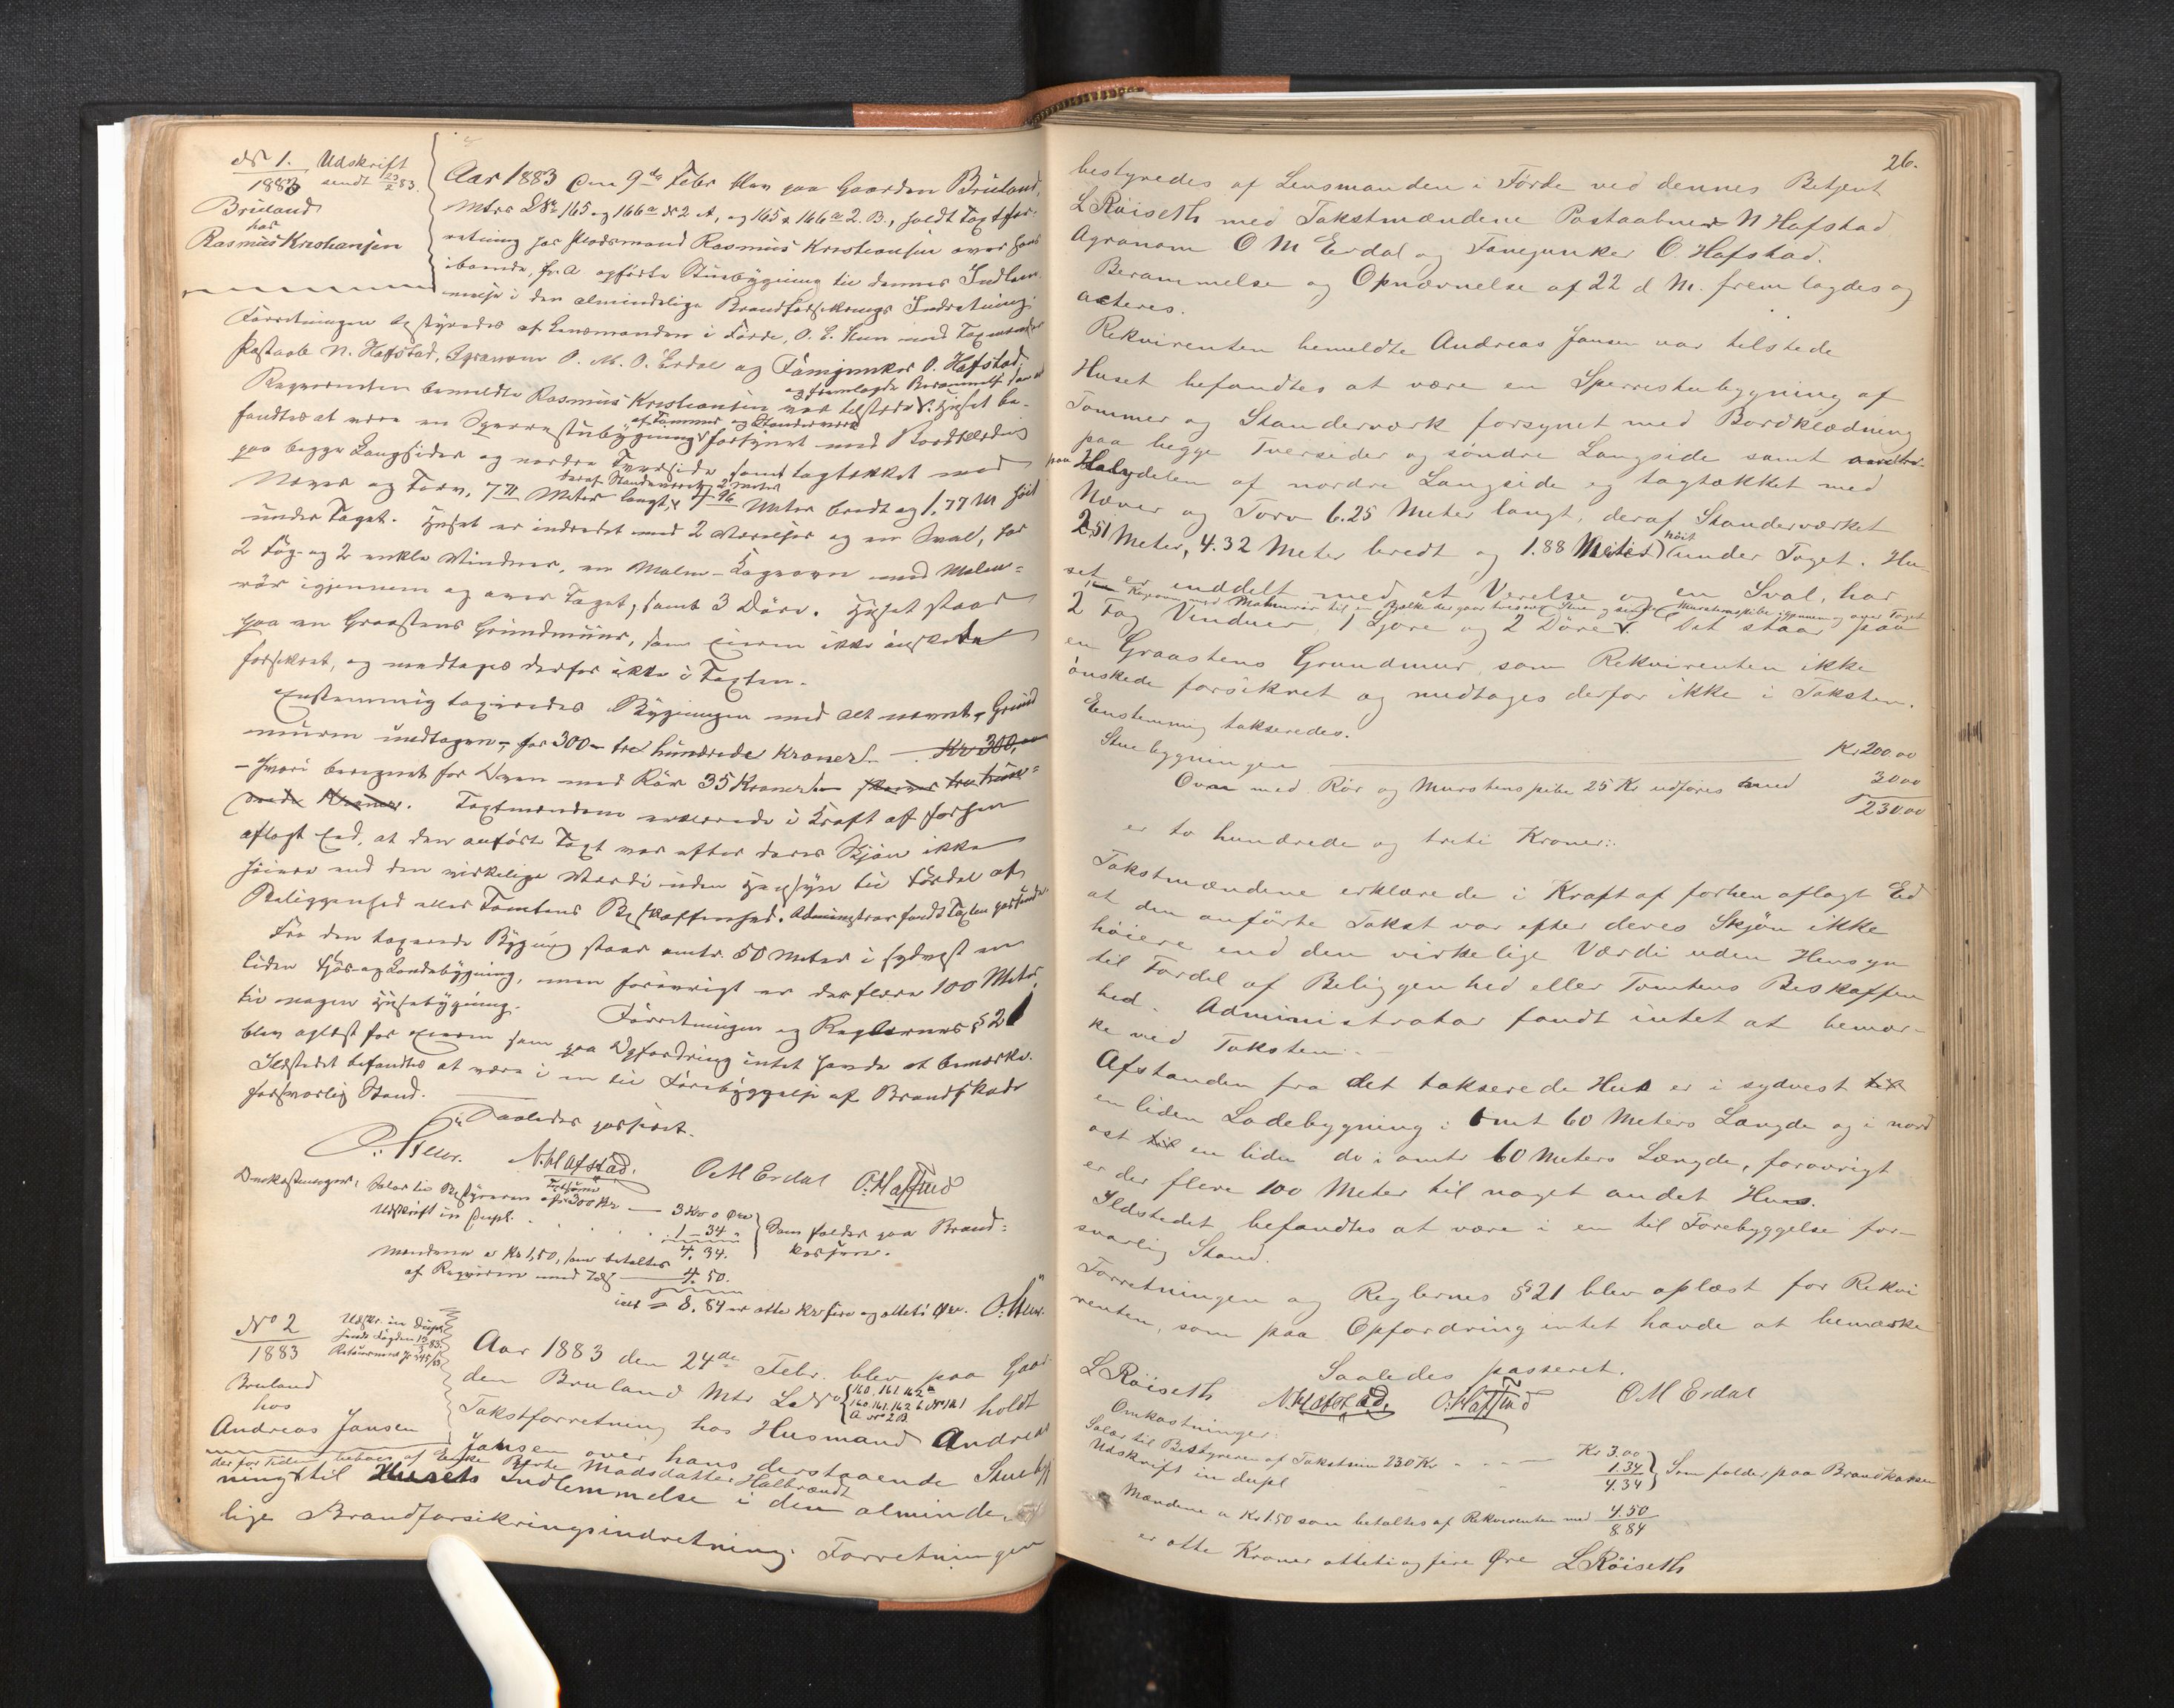 No 1. Udskrift
1883 sendt 23/2 83.
Bruland
hos
Rasmus Kristiansen
Aar 1883 den 9de Febr blev paa Gaarden Bruland,
Mtr LNr 165 og 166a No 2 A, og 165 & 166a 2. B., holdt Taxtfor-
retning hos Pladsmand Rasmus Kristiansen over hans
iboende, opførte Stuebygning til dennes Indlem-
melse i den almindelige Brandforsikrings Indretning.
Forretningen bestyredes af Lensmanden i Førde, O. L. med Taxmænd
Postaab N. Hafstad, Agronom O. M. O. Erdal og Fanejunker O. Hafstad.
og fremlagde Berammelse
Reqvirenten bemeldte Rasmus Kristiansen var tilstede. Huset be-
af Tømmer og Standerværk
fandtes at være en Sperrestubygning forsynet med Bordklædning
paa begge Langsider og nordre Tverside samt tagtækket med
deraf Standerværk 2 Meter
Næver og Torv, 7.71 Meter langt, 4.96 Meter bredt og 1.77 M høit
under Taget. Huset er indredet med 2 Værelser og en Sval, har
2 Fag og 2 enkle Vinduer, en Malm-Kagovn med Malm-
rør igjennem og over Taget, samt 3 Døre. Huset staar
paa en Graastens Grundmuur, som Eieren ikke ønskede
forsikret, og medtages derfor ikke i Taxten.
Enstemmig taxeredes Bygningen med alt nævnt, Grund
muren undtagen, for 300 - tre hundrede Kroner. Kr 300,00
- hvori beregnet for Ovnen med Rør 35 Kroner.
Kroner. Taxtmændene erklærede i Kraft af forhen
aflagt Eed, at den anførte Taxt var efter deres Skjøn ikke
høiere end den virkelige Værdi uden Hensyn til Fordel af
Beliggenhed eller Tomtens Beskaffenhed. Administrator fandt Taxten passende
Fra den taxerede Bygning staar omtr. 50 Meter i sydvest en
liden Fjøs og Ladebygning, men forøvrigt er der flere 100 Meter
til nogen Husebygning. Forretningen og Reglernes § 21
blev oplæst for Eieren som paa Opfordring intet havde at bemærke.
Ildstedet befandtes at være i en til Forebyggelse af Brandskade
forsvarlig Stand.
Saaledes passeret.
N. Hafstad. O M Erdal O. Hafstad
Omkostninger: Salær til Bestyreren af 300 Kr — 3 Kr 0 Øre
Udskrift in dupl. 1 - 34
4. 34. Som falder paa Brand-
kassen.
Mændene a Kr 1,50, som betaltes
af Reqvirenten med 4. 50.
= 8. 84 er otte Kr fire og otteti Øre.
No 2
1883
Udskr. in dupl.
Bruland
hos
Andreas Jansen
Aar 1883 den 24de Febr. blev paa Gaar-
den Bruland Mtr LNo 160. 161. 162 a
160. 161. 162 b No 1 & 1
A No 2 B. holdt
Takstforretning hos Husmand Andreas
Jansen over hans derstaaende Stueby
der for Tiden beboes af Enke Berte Madsdatter Halbrændt
ning til Husets Indlemmelse i den alminde-
lige Brandforsikringsindretning. Forretningen
26.
bestyredes af Lensmanden i Førde ved dennes Betjent
L Røiseth med Takstmændene Postaabner N Hafstad
Agronom O M Erdal og Fanejunker O. Hafstad.
Berammelse og Opnævnelse af 22 d M. frem lagdes og
acteres.
Rekvirenten bemeldte Andreas Jansen var tilstede
Huset befandtes at være en Sperrestubygning af
Tømmer og Standerværk forsynet med Bordklædning
paa begge Tversider og søndre Langside samt
paa Halvdelen af nordre Langside og tagtækket med
Næver og Torv 6.25 Meter langt, deraf Standerværket
2.51 Meter, 4.32 Meter bredt og 1.88 Meter høit under Taget. Hu-
set er inddelt med et Værelse og en Sval, har
Kagovn med Malmrør til en gaar Murstenspibe igjennem og over Taget
2 Fag Vinduer, 1 og 2 Døre. Det staar paa
en Graastens Grundmur, som Rekvirenten ikke
ønskede forsikret og medtages derfor ikke i Taksten.
Enstemmig takseredes.
Stuebygningen — Kr 200.00
Ovnen med Rør og Murstenspibe 25 Kr udføres med 30.00
230.00
er to hundrede og treti Kroner:
Takstmændene erklærede i Kraft af forhen aflagt Ed
at den anførte Takst var efter deres Skjøn ikke
høiere end den virkelige Værdi uden Hensyn
til Fordel af Beliggenhed eller Tomtens Beskaffen
hed. Administrator fandt intet at bemær-
ke ved Taksten.
Afstanden fra det takserede Hus er i sydvest til
en liden Ladebygning i omt 60 Meters Længde og i nord
ost til en liden do i omtr 60 Meters Længde, forøvrigt
er der flere 100 Meter til noget andet Hus.
Ildstedet befandtes at være i en til Forebyggelse for-
svarlig Stand.
Forretningen og Reglernes § 21 blev oplæst for Rekvi
renten, som paa Opfordring intet havde at bemærke
Saaledes passeret.
L Røiseth N. Hafstad. O. Hafstad O M Erdal
Omkostninger:
Salær til Bestyreren af Takstsum 230 Kr - - - Kr 3.00
Udskrift in dupl 1.34 Som falder paa Brandkassen
4.34
Mændene a Kr 1.50 som betaltes af Rekvirenten med 4.50
8.84
er otte Kroner ottetiogfire Øre L Røiseth